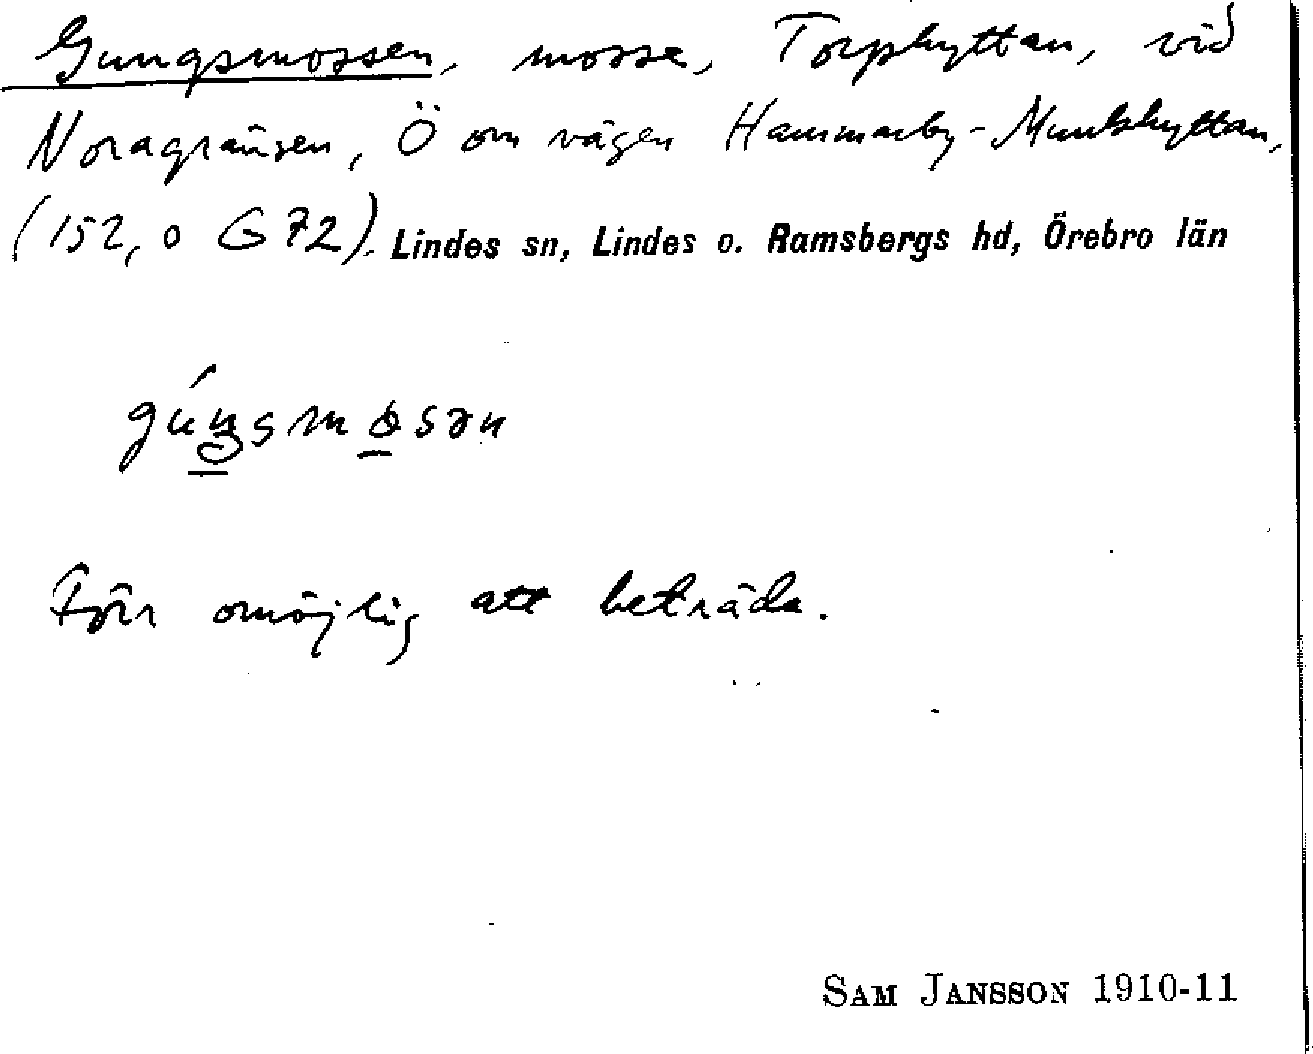 Gungsmossen, mosse, Torphyttan, vid
Noragränsen, Ö om vägen Hammarby-Munkhyttan,
(152, o G 72). Lindes sn, Lindes o. Ramsbergs hd, Örebro län
gúŋsmosən
Förr omöjlig att beträda.
SAM JANSSON 1910-11